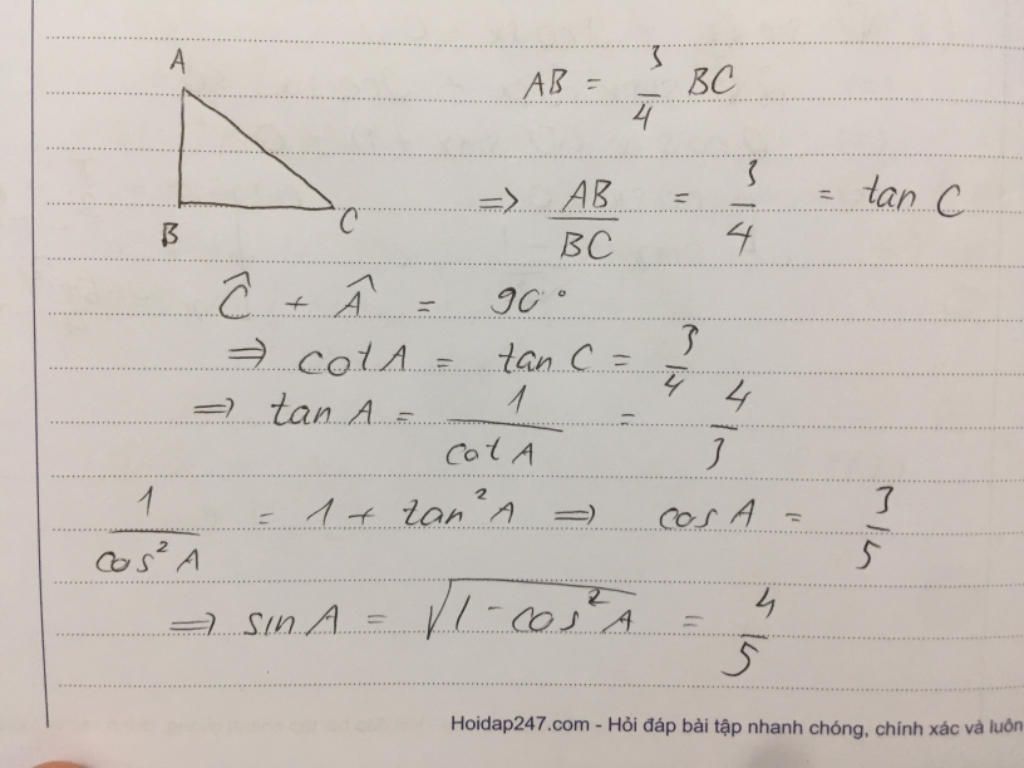 A
B
C
AB = 3/4 BC
=> AB/BC = 3/4 = tan C
Ĉ + Â = 90°
=> cot A = tan C = 3/4
=> tan A = 1/cot A = 4/3
1/cos² A = 1 + tan² A => cos A = 3/5
=> sin A = √(1 - cos² A) = 4/5
Hoidap247.com - Hỏi đáp bài tập nhanh chóng, chính xác và luôn